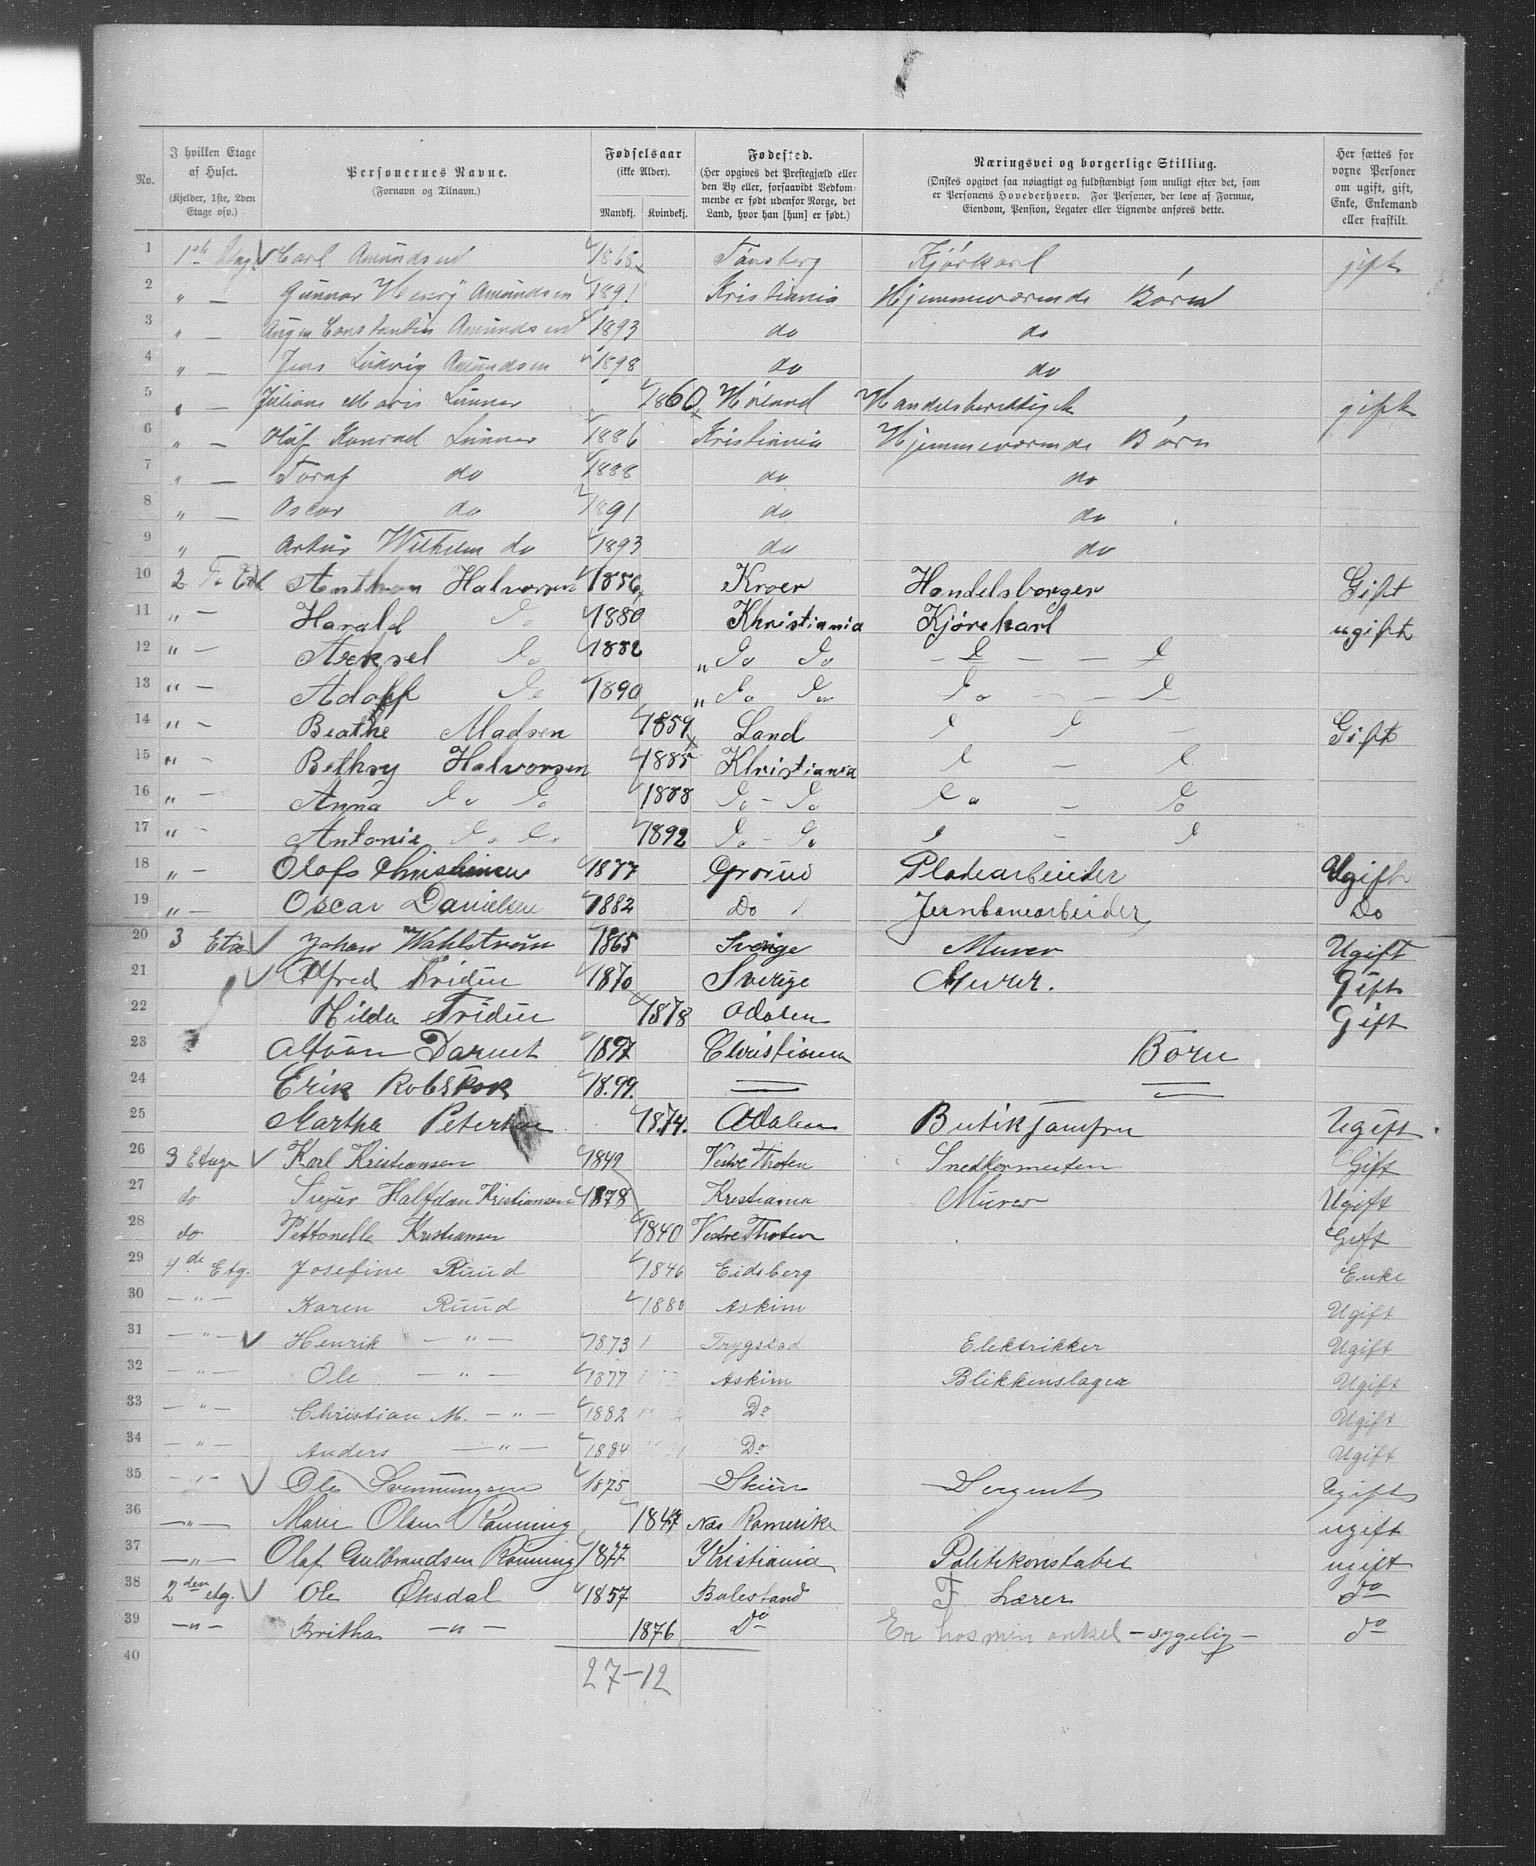 No. | I hvilken Etage af Huset. (Kjelder, 1ste, 2den Etage osv.) | Personernes Navne. (Fornavn og Tilnavn.) | Fødselsaar (ikke Alder). Mandkj. Kvindekj. | Fødested. (Her opgives det Prestegjæld eller den By eller, forsaavidt Vedkommende er født udenfor Norge, det Land, hvor han [hun] er født.) | Næringsvei og borgerlige Stilling. (Ønskes opgivet saa nøiagtigt og fuldstændigt som muligt efter det, som er Personens Hovederhverv. For Personer, der leve af Formue, Eiendom, Pension, Legater eller Lignende anføres dette. | Her sættes for vorne Personer om ugift, gift, Enke, Enkemand eller fraskilt.
1 1ste Etag. Carl Amundsen 1865 Tønsberg Kjørkarl gift
2 " — Gunnar Henry Amundsen 1891 Kristiania Hjemmeværende Børn
3 " — Constantin Amundsen 1893 do do
4 " — Jens Ludvig Amundsen 1898 do do
5 " — Juliane Marie Linner 1860 Høland Handelsberettiget gift
6 " — Olaf Konrad Linner 1886 Kristiania Hjemmeværende Børn
7 " — Toraf do 1888 do do
8 " — Oscar do 1891 do do
9 " Artur Wilhelm do 1893 do do
10 2 Anthon Halvorsen 1856 Kroer Handelsborger Gift
11 " — Harald Do 1880 Khristiania Kjørekarl ugift
12 " — Aeksel Do 1882 " Do Do
13 " — Adolf Do 1890 " Do Do
14 " — Beathe Madsen 1859 Land Gift
15 " — Bethsy Halvorsen 1885 Khristiania
16 " — Anna Do Do 1888 Do - Do
17 " — Antonie Do Do 1892 Do - Do
18 " — Olafs Christiansen 1877 Grorud Pladearbeider Ugift
19 " — Oscar Danielsen 1882 Do Jernbanearbeider Do
20 3 Eta Johan Wahlstrøm 1865 Sverige Murer Ugift
21 Alfred Fridin 1870 Sverige Murer. Gift
22 Hilda Fridin 1878 Adalen Gift
23 1897 Christiania Børn
24 Erik 1899.
25 Martha Peterson 1874. Adalen Butikjomfru Ugift.
26 3 Etage Karl Kristiansen 1849 Vestre Thoten Snedkermester Gift
27 do Sigur Halfdan Kristiansen 1878 Krestiania Murer Ugift
28 do Pettonelle Kristiansen 1840 Vestre Thoten Gift
29 4de Etg. Josefine Ruud 1846 Eidsberg Enke
30 — " — Karen Ruud 1880 Askim Ugift
31 — " — Henrik — " — 1873 Trygstad Elektrikker Ugift
32 — " — Ole — " — 1877 Askim Blikkenslager Ugift
33 — " — Christian M. — " — 1882 Do Ugift
34 — " — Anders — " — 1884 Do Ugift
35 — " — Ole Svenningsen 1875 Skien Sergent Ugift
36 — " — Marie Olsen Rønning 1847 Nas Romerike ugift
37 — " — Olaf Gulbrandsen Rønning 1877 Kristiania Politikonstabel ugift
38 2den etg. Ole Øksdal 1857 Balestrand F. Lærer do
39 — " — Britha — " — 1876 Do Er hos min onkel - sygelig - do
40
27 - 12